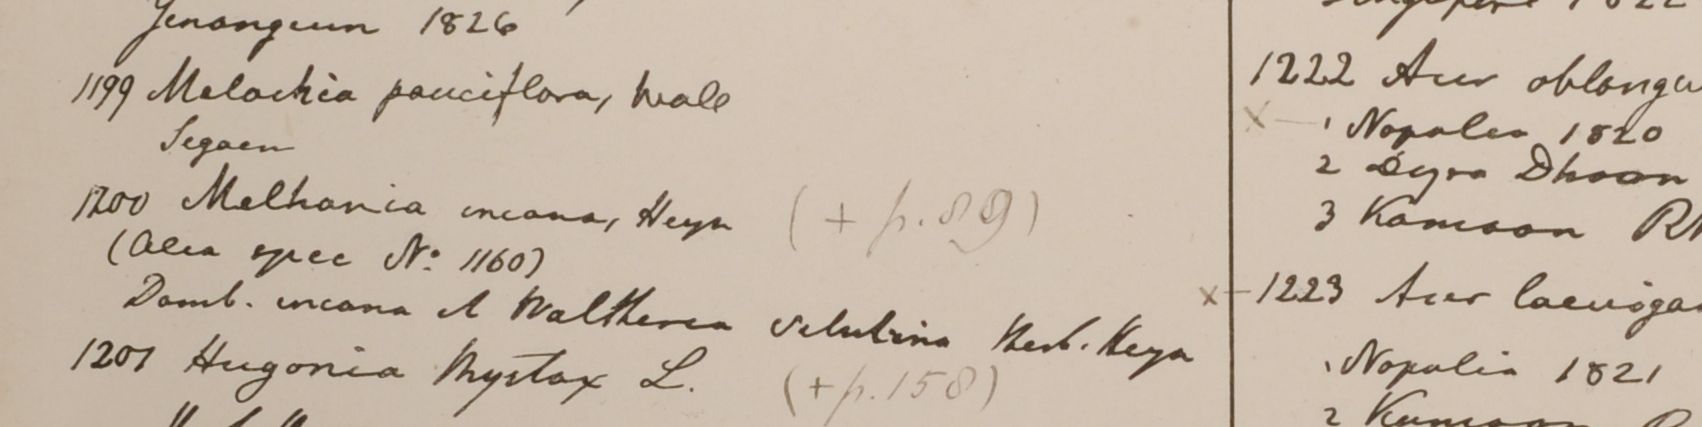 Yenangeun 1826
1199 Melochia pauciflora, Wall
Segaen
1200 Melhania incana, Heyn (+ p. 89)
(Alia spec Nº 1160)
Domb. incana et Waltheria velutina Herb. Heyn
1201 Hugonia Mystax L. (+ p. 158)
1822
1222 Acer oblongu
x — 1 Napalia 1820
2 Deyra Dhoon
3 Kamaon
x — 1223 Acer laeviga
1 Napalia 1821
2 Kamaon